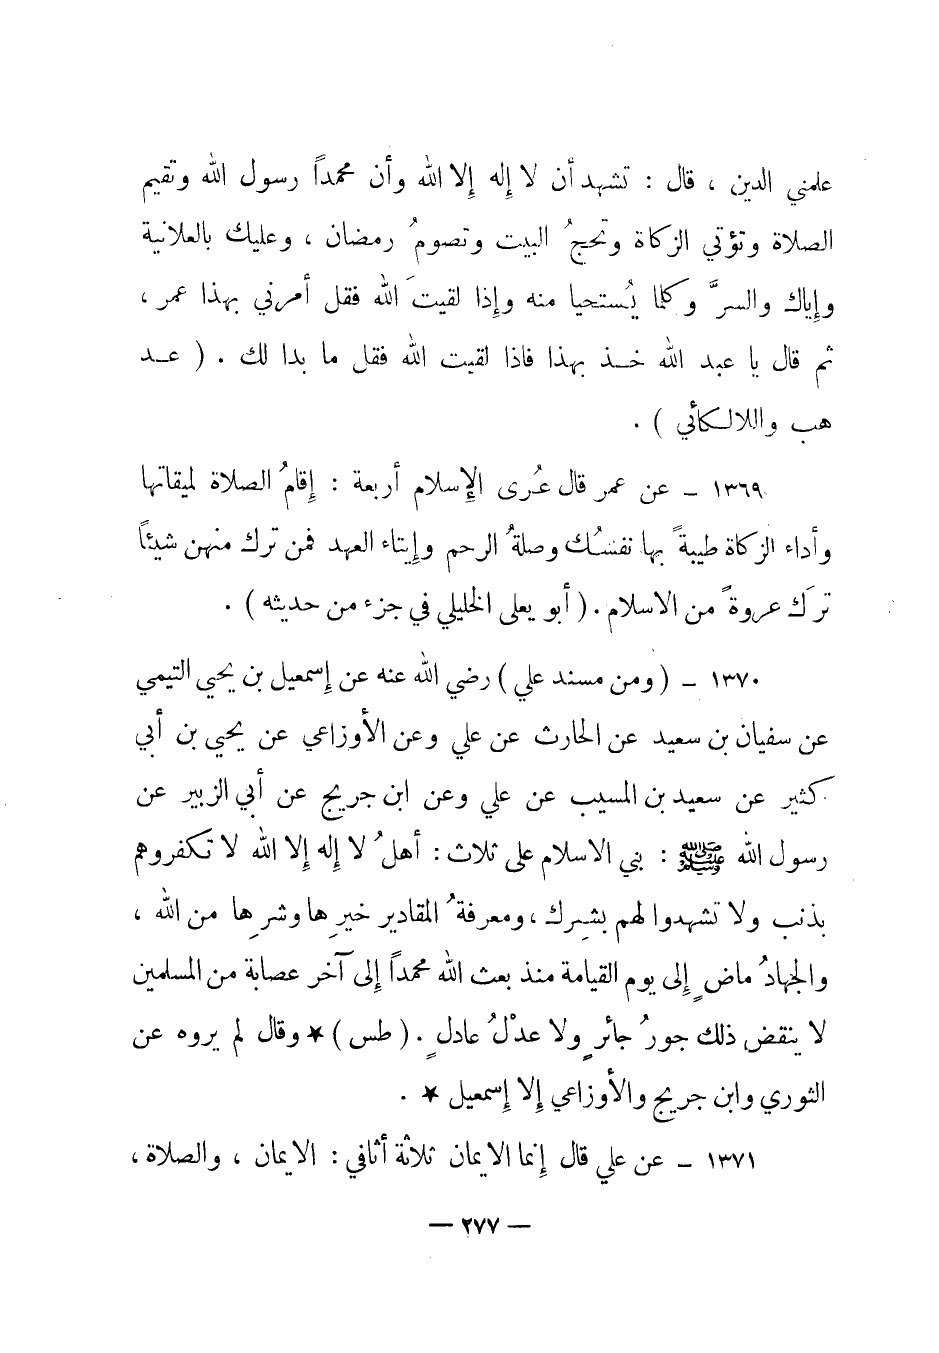 علمني الدين ، قال : تشهد أن لا إله إلا الله وأن محمداً رسول الله وتقيم
الصلاة وتؤتي الزكاة وتحجُ البيت وتصومُ رمضان ، وعليك بالعلانية
وإياك والسرَّ وكلما يُستحيا منه وإذا لقيتَ الله فقل أمرني بهذا عمر ،
ثم قال يا عبد الله خذ بهذا فاذا لقيت الله فقل ما بدا لك . ( عد
هب واللالكأئي ) .
١٣٦٩ – عن عمر قال عُرى الإسلام أربعة : إقامُ الصلاة لميقاتها
وأداء الزكاة طيبةً بها نفسُك وصلةُ الرحم وإيتاء العهد فمن ترك منهن شيئاً
ترَك عروةً من الاسلام . ( أبو يعلى الخليلي في جزء من حديثه ) .
١٣٧٠ – ( ومن مسند علي ) رضي الله عنه عن إسمعيل بن يحيي التيمي
عن سفيان بن سعيد عن الحارث عن علي وعن الأوزاعي عن يحيي بن أبي
كثير عن سعيد بن المسيب عن علي وعن ابن جريج عن أبي الزبير عن
رسول الله ﷺ : بني الاسلام على ثلاث : أهلُ لا إله إلا الله لا تكفروهم
بذنب ولا تشهدوا لهم بشِرك ، ومعرفةُ المقادير خيرِها وشرِها من الله ،
والجهادُ ماضٍ إلى يوم القيامة منذ بعث الله محمداً إلى آخر عصابة من المسلمين
لا ينقض ذلك جورُ جائرٍ ولا عدْلُ عادلٍ . ( طس ) ★ وقال لم يروه عن
الثوري وابن جريج والأوزاعي إلا إسمعيل ★ .
١٣٧١ – عن علي قال إنما الايمان ثلاثة أثافي : الايمان ، والصلاة ،
— ٢٧٧ —